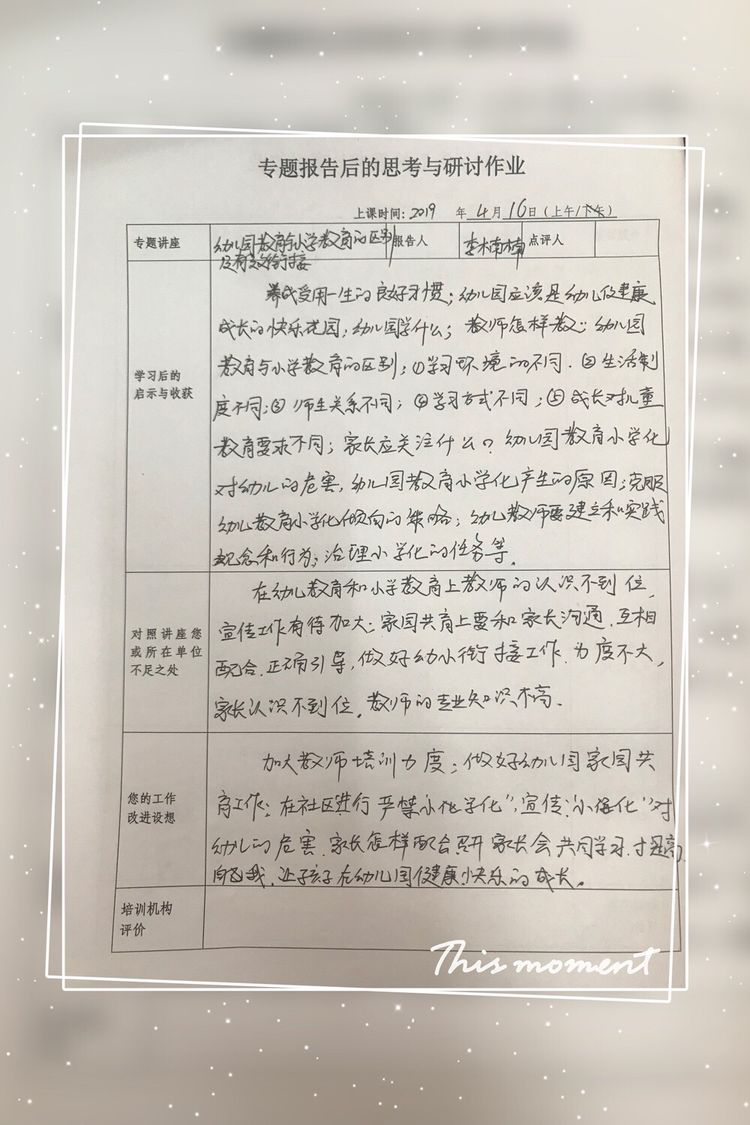 专题报告后的思考与研讨作业
上课时间: 2019 年 4 月 16 日（上午/下午）
专题讲座 幼儿园教育与小学教育的区别 报告人 李楠楠 点评人
及有效衔接
养成受用一生的良好习惯；幼儿园应该是幼儿健康
成长的快乐花园；幼儿园学什么；教师怎样教；幼儿园
教育与小学教育的区别；①学习环境的不同.②生活制
学习后的
启示与收获
度不同；③师生关系不同；④学习方式不同；⑤成长对儿童
教育要求不同；家长应关注什么？幼儿园教育小学化
对幼儿的危害，幼儿园教育小学化产生的原因；克服
幼儿教育小学化倾向的策略；幼儿教师要建立和实践
观念和行为；治理小学化的任务等。
在幼儿教育和小学教育上教师的认识不到位，
宣传工作有待加大；家园共育上要和家长沟通，互相
对照讲座您
或所在单位
不足之处
配合，正确引导，做好幼小衔接工作，力度不大，
家长认识不到位，教师的专业知识不高.
加大教师培训力度；做好幼儿园家园共
育工作；在社区进行严禁小学化”，宣传“小学化”对
您的工作
改进设想
幼儿的危害，家长怎样配合召开家长会共同学习，提高
自我，让孩子在幼儿园健康快乐的成长。
培训机构
评价
This moment